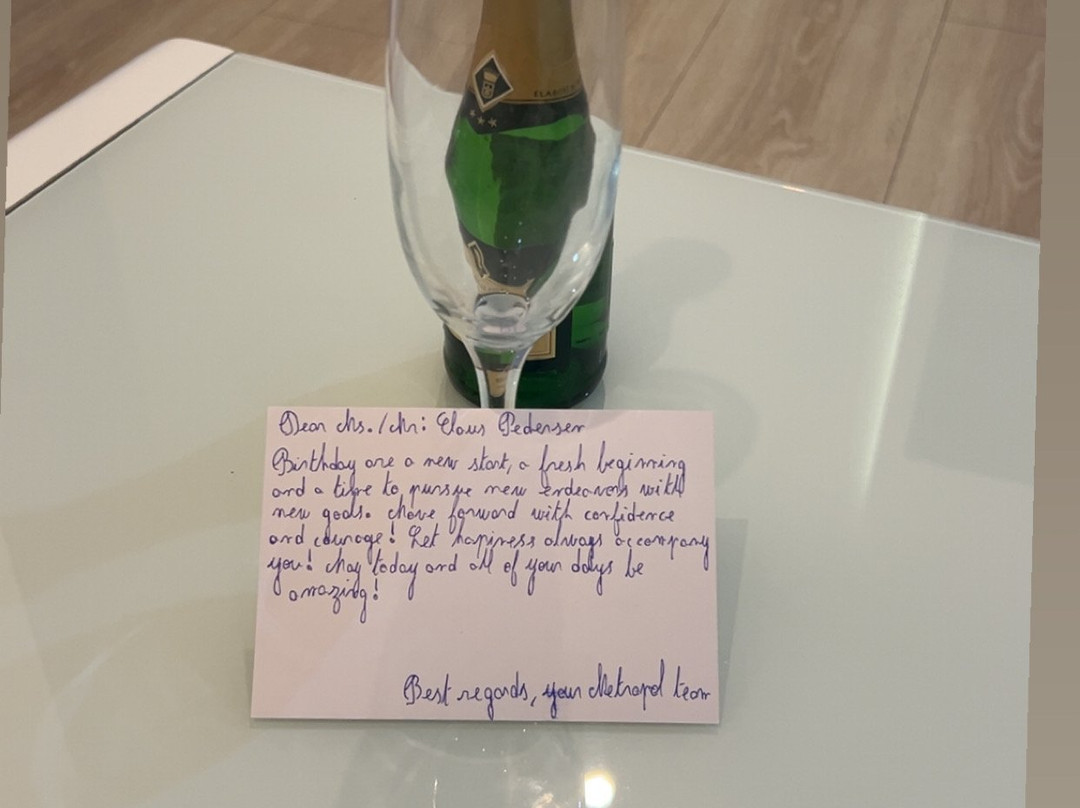 ELABOR
Dear Ms./Mr: Claus Pedersen
Birthday are a new start, a fresh beginning
and a time to pursue new endeavors with
new goals. Move forward with confidence
and courage! Let hapiness always accompany
you! May today and all of your days be
amazing!
Best regards, your Metropol team